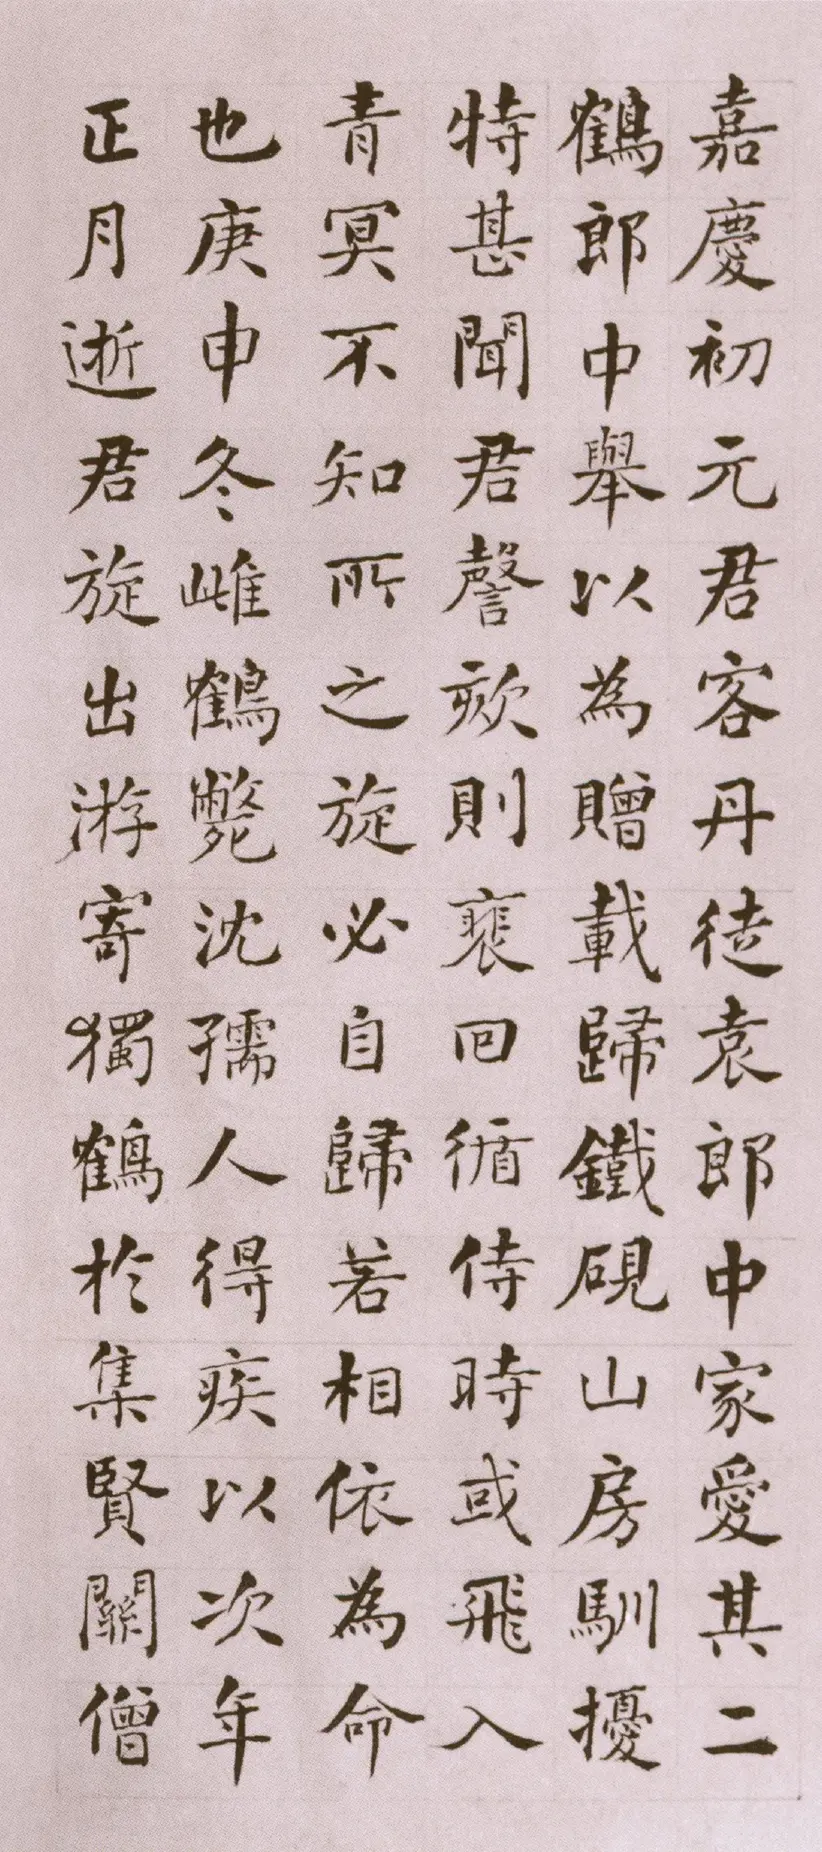 嘉慶初元君客丹徒袁郎中家愛其二
鶴郎中舉以為贈載歸鐵硯山房馴擾
特甚聞君謦欬則裴回循侍時或飛入
青冥不知所之旋必自歸若相依為命
也庚申冬雌鶴斃沈孺人得疾以次年
正月逝君旋出游寄獨鶴於集賢關僧